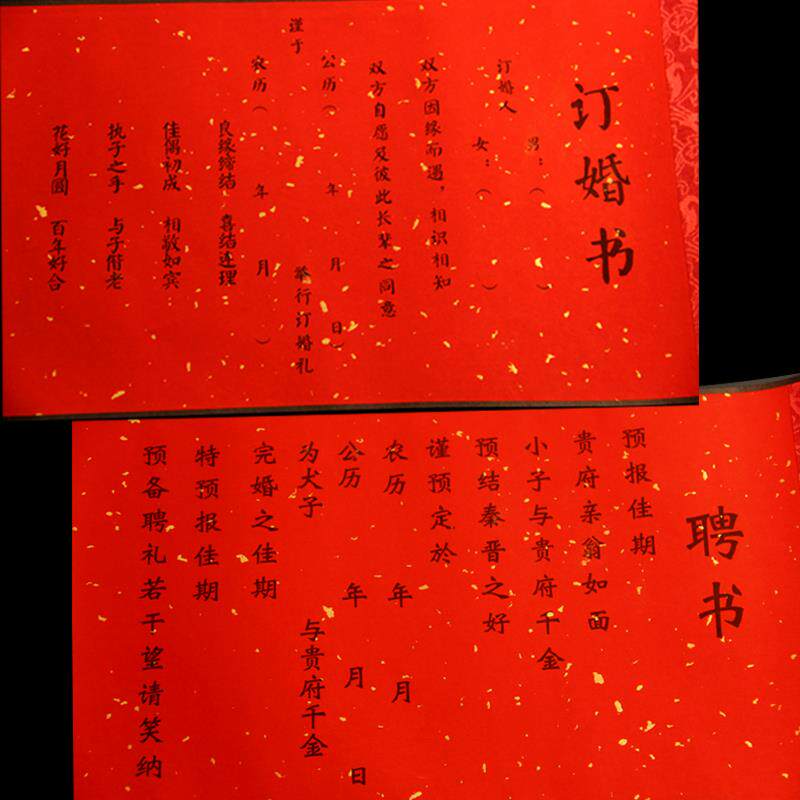 订婚书
订婚人
男：（ ）
女：（ ）
双方因缘而遇，相识相知
双方自愿及彼此长辈之同意
公历（ 年 月 日）
谨于 举行订婚礼
农历（ 年 月 ）
良缘缔结 喜结连理
佳偶初成 相敬如宾
执子之手 与子偕老
花好月圆 百年好合
聘书
预报佳期
贵府亲翁如面
小子与贵府千金
预结秦晋之好
谨预定於
农历 年 月
公历 年 月 日
为犬子 与贵府千金
完婚之佳期
特预报佳期
预备聘礼若干望请笑纳